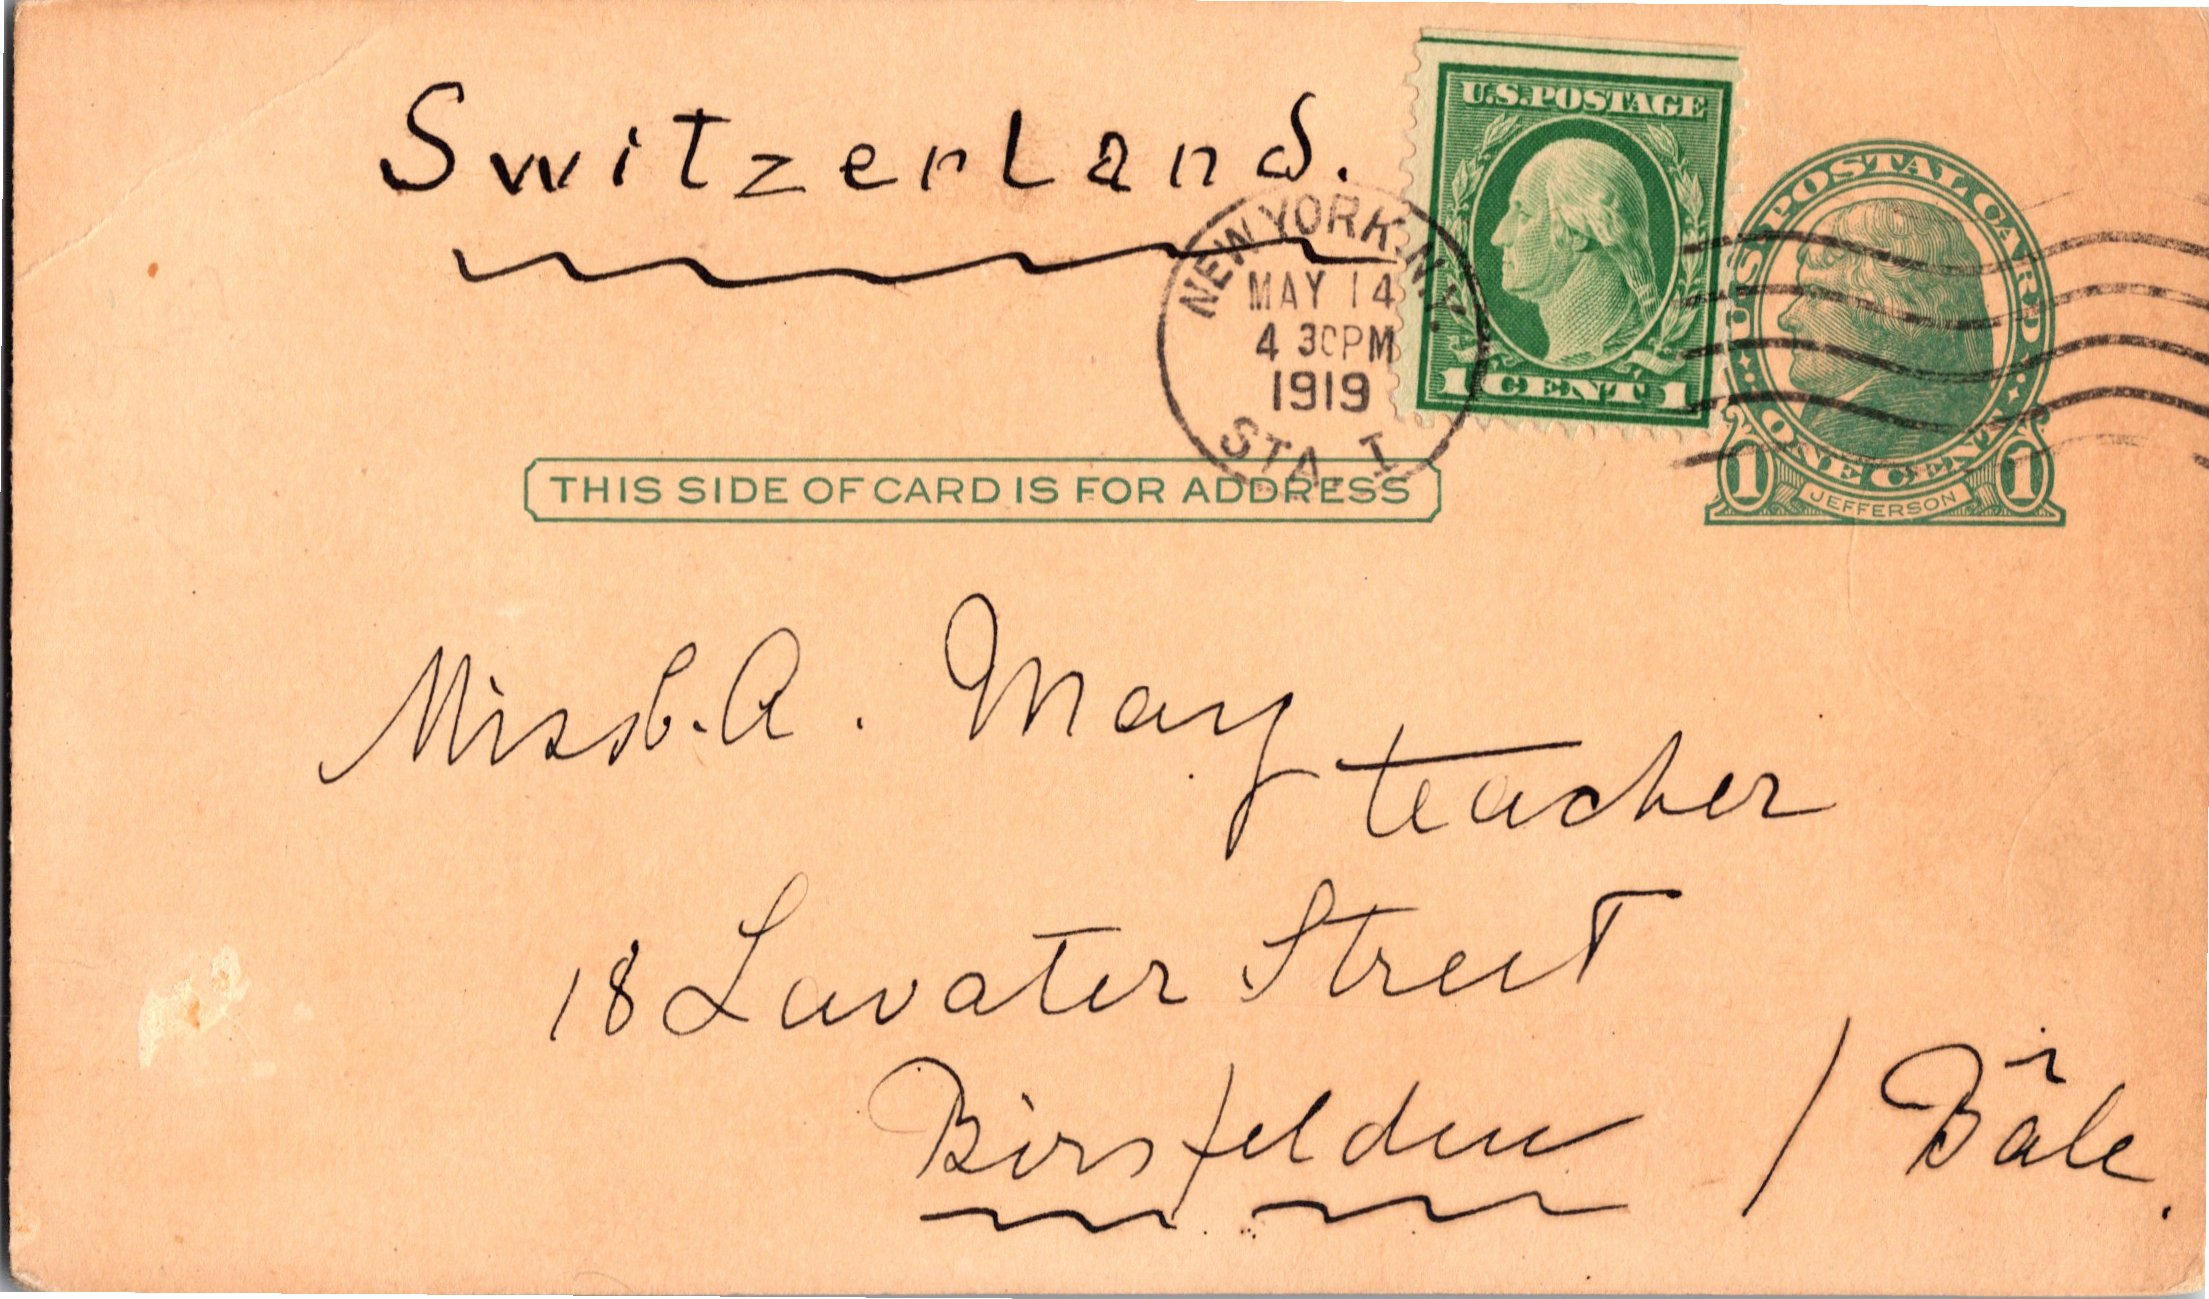 Switzerland.
U.S. POSTAGE
1 CENT 1
U.S. POSTAL CARD
ONE CENT
1 JEFFERSON 1
NEW YORK, N.Y.
MAY 14
4 30 PM
1919
STA. I
THIS SIDE OF CARD IS FOR ADDRESS
Miss A. May
teacher
18 Lavater Street
Birsfelden / Bâle.